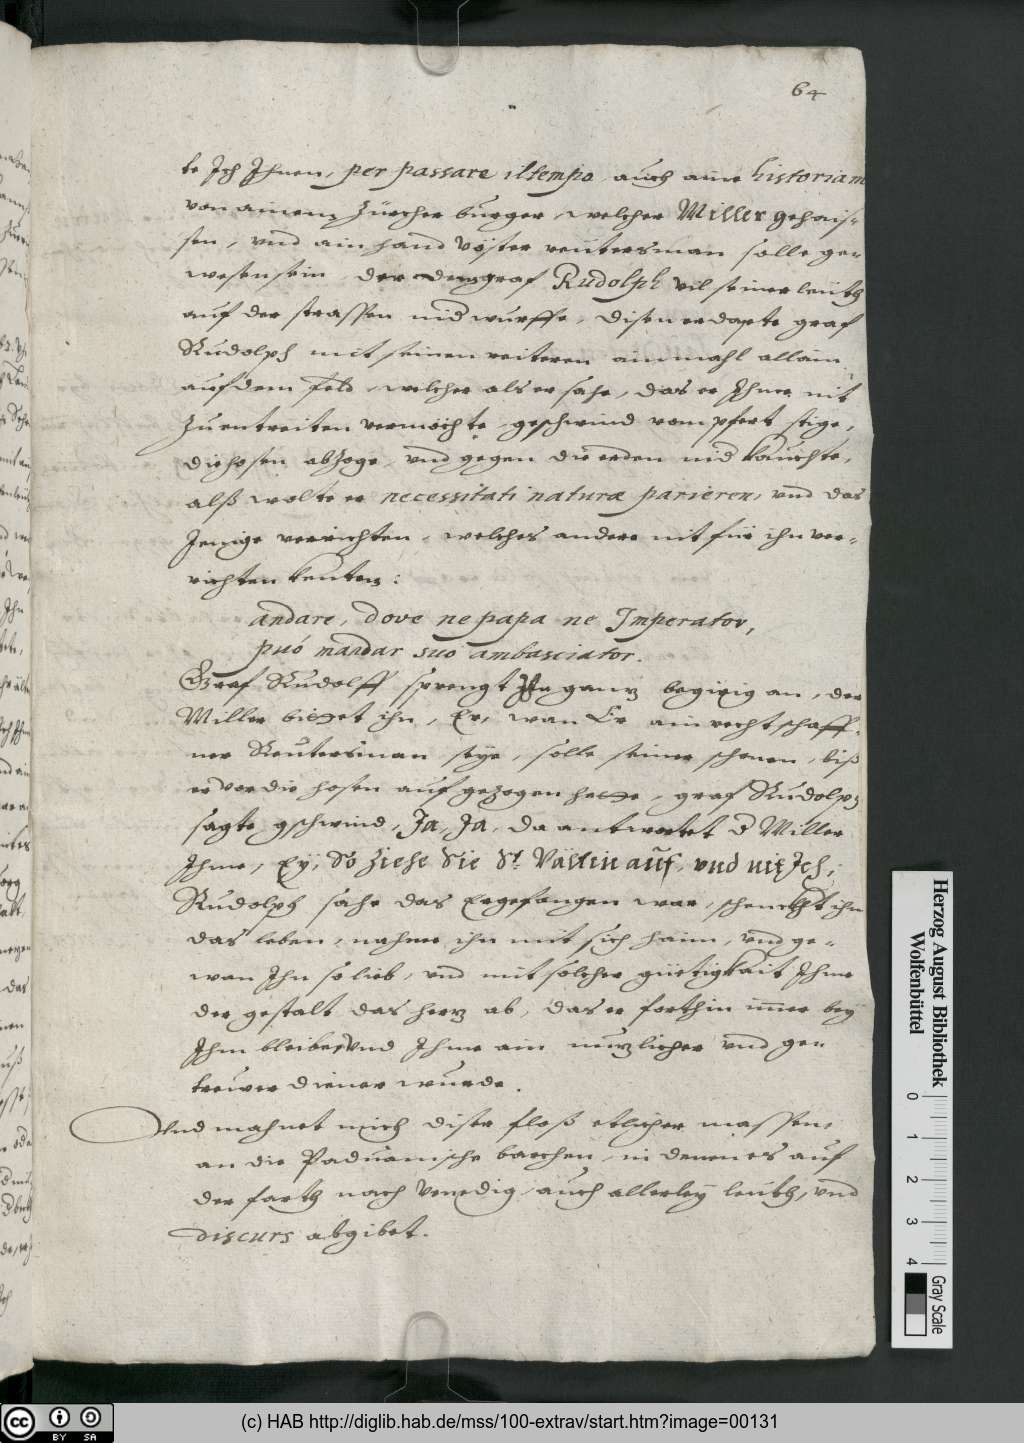 64
te Ich Ihnen, per passare il tempo auch aine historiam
von ainem Zürcher burger, welcher Miller gehais-
sen, vnd ain hand vöster reütersman solle ge-
wesen sein, der dem graf Rudolph vil seiner leüth
auf der strassen nid wurffe, disen erdapte graf
Rudolph mit seinen reiteren ainmahl allain
auf dem feld, welcher als er sahe, das er Ihme nit
zu entreiten vermöchte, geschwind vom pfert stige,
die hosen abzoge, vnd gegen die erden nid kauchte,
alß wolte er necessitati naturæ parieren, vnd das
Jenige verrichten, welches andere nit für ihn ver-
richten kenten:
andare, dove ne papa ne Imperator,
può mandar suo ambasciator.
Graf Rudolff sprengt Ihn ganz begirig an, der
Miller bittet ihn, Er, wan Er ain rechtschaff-
ner Reutersman seye, solle seiner schonen, biß
er vor die hosen auf gezogen hette, graf Rudolph
sagte gschwind, Ja, Ja, da antwortet d Miller
Ihme, Ey, So ziehe Sie St. Vältin auf, vnd nit Ich;
Rudolph sahe das Er gefangen war, schenckht ihm
das leben, nahme ihn mit sich haim, vnd ge-
wan Ihn so lieb, vnd mit solcher güetigkait Ihme
der gestalt das herz ab, das er forthin imer bey
Ihm bleibe, vnd Ihme ain nuzlicher vnd ge-
trewer diener wurde.
Vnd mahnet mich diser floß etlicher massen
an die Paduanische barchen, in denen es auf
der farth nach Venedig, auch allerley leüth, vnd
discurs abgibet.
Herzog August Bibliothek
Wolfenbüttel
0 1 2 3 4
Gray Scale
cc BY SA
(c) HAB http://diglib.hab.de/mss/100-extrav/start.htm?image=00131